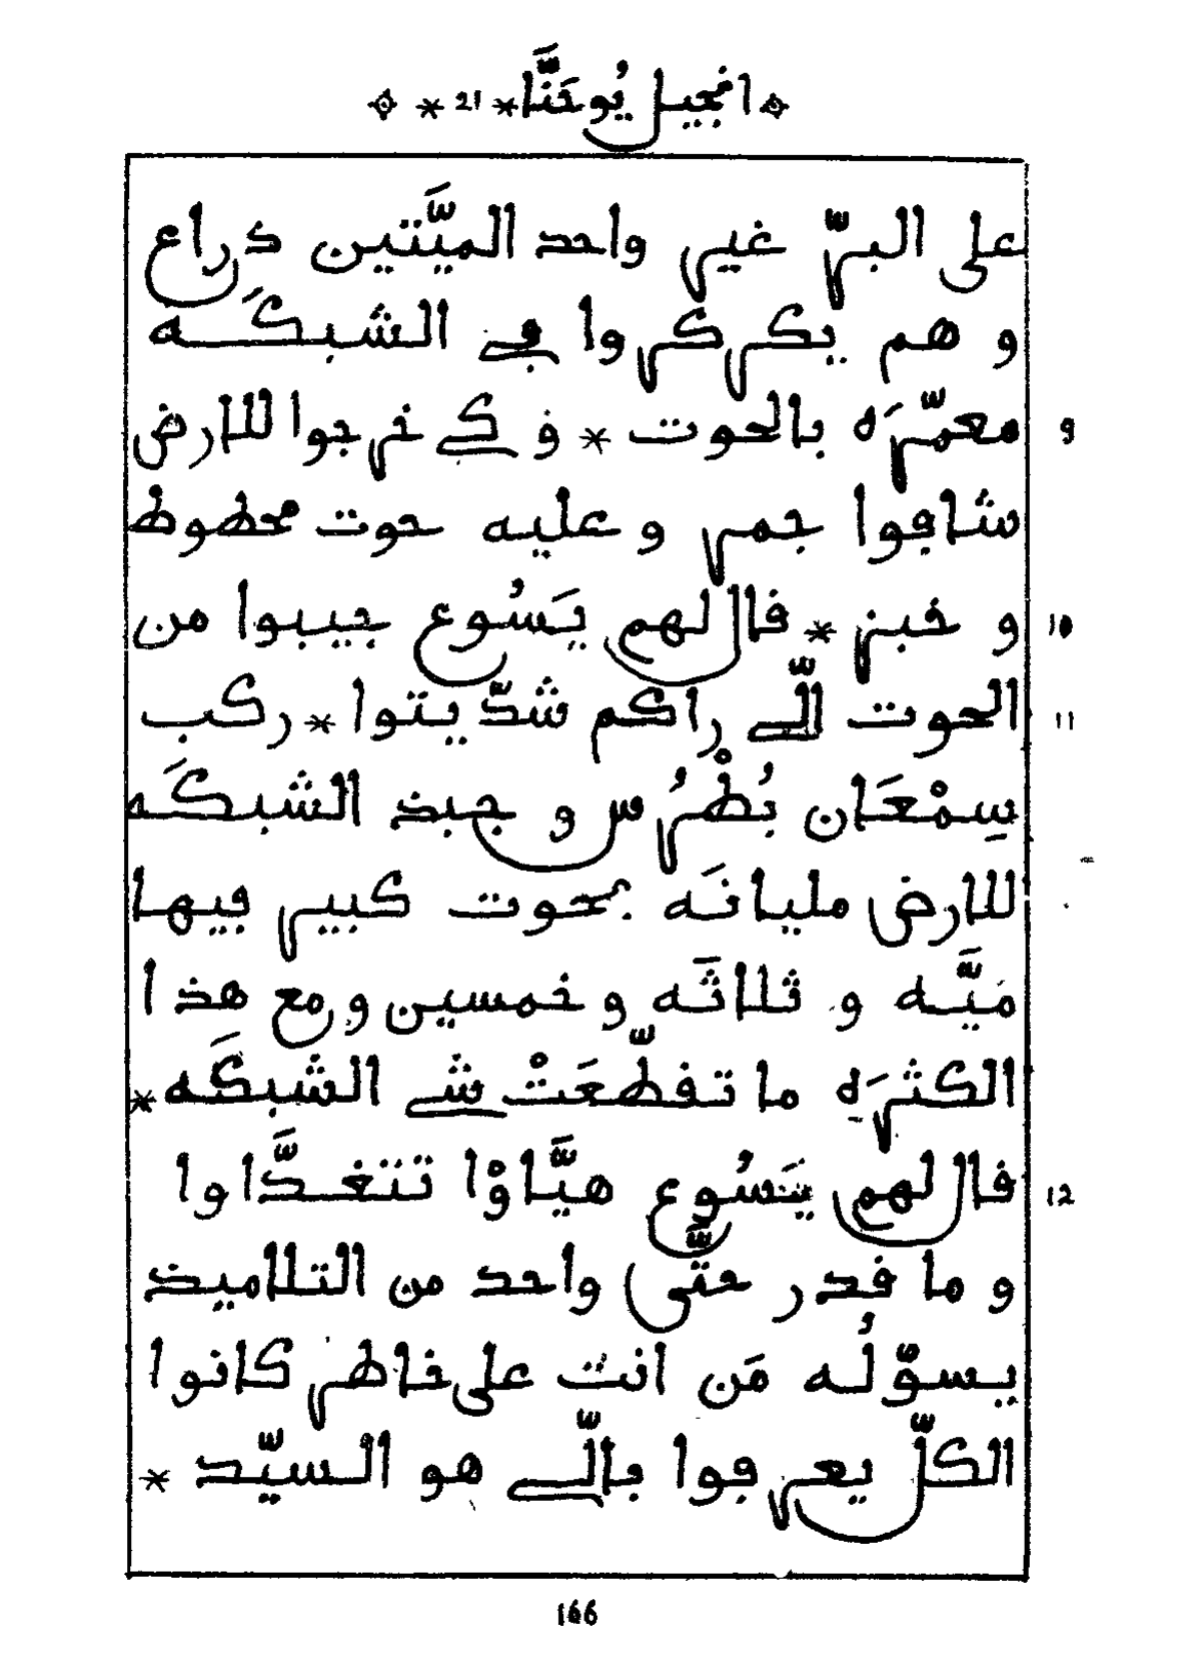 انجيل يُوحَنَّا * 21 *
على البرّ غير واحد الميَّتين دراع
و هم يكركروا في الشبكَه
9 معمّرَه بالحوت * و كي خرجوا للارض
شافوا جمر و عليه حوت محطوط
10 و خبز * قال لهم يَسُوع جيبوا من
11 الحوت الّي راكم شدّيتوا * ركب
سِمْعَان بُطْرُس و جبذ الشبكَه
للارض مليانَه بحوت كبير فيها
مَيَّه و ثلاثَه و خمسين و مع هذا
الكثرَه ما تقطّعَتْ شي الشبكَه *
12 قال لهم يَسُوع هيَّاوْا تتغدَّاوا
و ما قدر حتَّى واحد من التلاميذ
يسوّلُه مَن انت على خاطر كانوا
الكلّ يعرفوا بالّي هو السيّد *
166